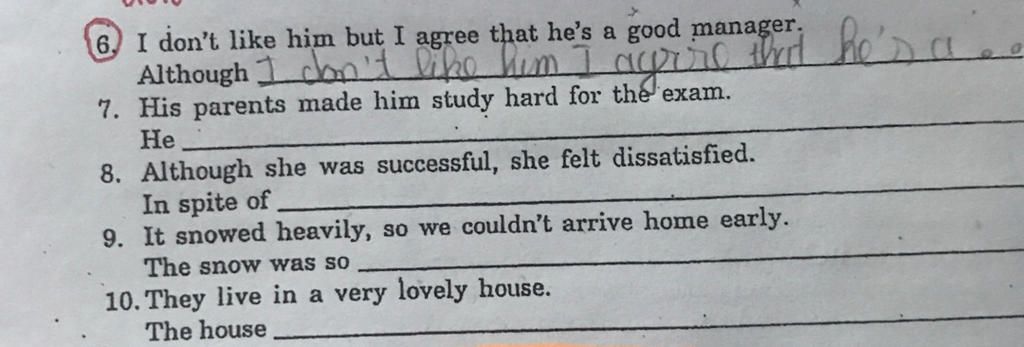 6. I don't like him but I agree that he's a good manager.
Although I don't like him I agree that he's a ..
7. His parents made him study hard for the exam.
He
8. Although she was successful, she felt dissatisfied.
In spite of
9. It snowed heavily, so we couldn't arrive home early.
The snow was so
10. They live in a very lovely house.
The house